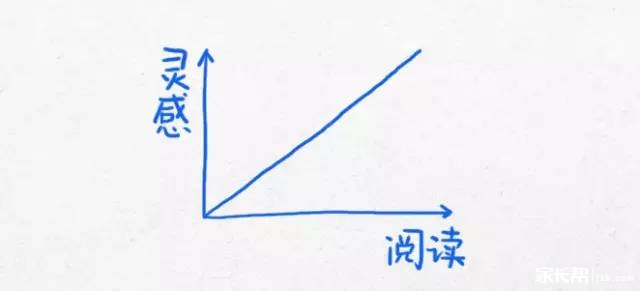 灵感
阅读
家长帮 jzb.com